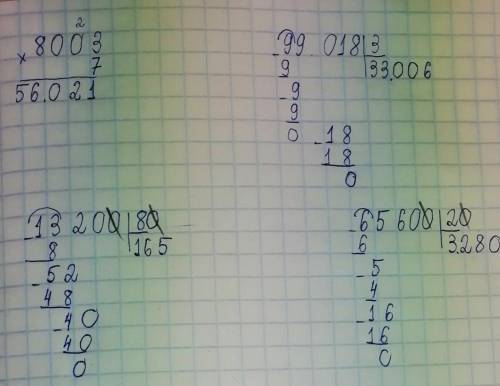 2
× 8003
7
56.021
- 99 018 | 3
9 33.006
- 9
9
0 - 18
18
0
- 13 200 | 80
8 165
- 52
48
- 40
40
0
- 65 600 | 20
6 3.280
- 5
4
- 16
16
0